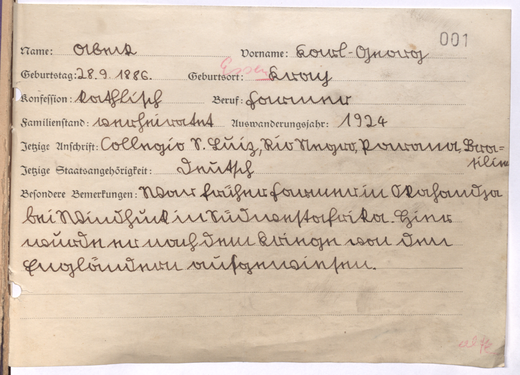 001
Name: Abeck Vorname: Karl-Georg
Geburtstag: 28.9.1886. Geburtsort: Essen Kray
Konfession: kathlisch Beruf: Farmer
Familienstand: verheiratet Auswanderungsjahr: 1924
Jetzige Anschrift: Collegio S. Luiz, Rio Negro, Parana, Bra=
silien
Jetzige Staatsangehörigkeit: Deutsch
Besondere Bemerkungen: War früher Farmer in Okahandja
bei Windhuk in Südwestafrika. Hier
wurde er nach dem Kriege von den
Engländern ausgewiesen.